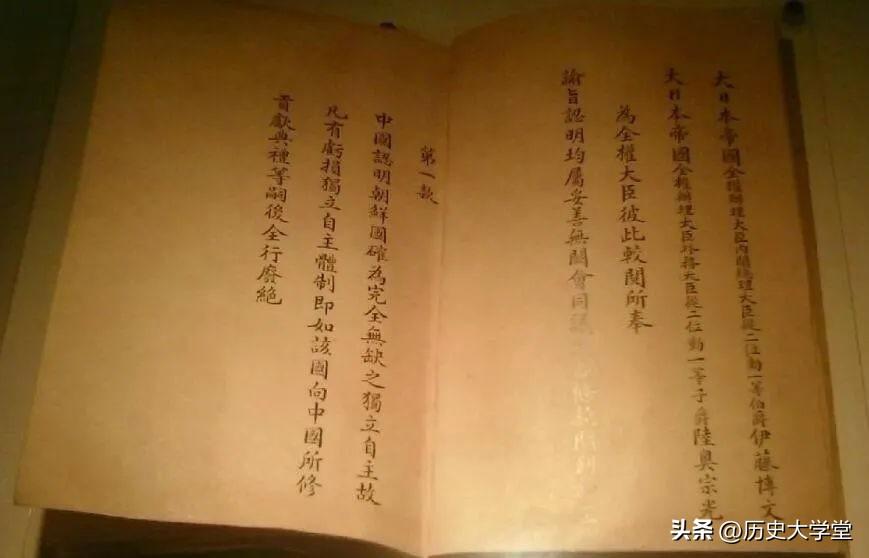 大日本帝國全權辦理大臣內閣總理大臣從二位勳一等伯爵伊藤博文
大日本帝國全權辦理大臣外務大臣從二位勳一等子爵陸奧宗光
為全權大臣彼此較閱所奉
諭旨認明均屬妥善無闕會同議
第一款
中國認明朝鮮國確為完全無缺之獨立自主故
凡有虧損獨立自主體制即如該國向中國所修
貢獻典禮等嗣後全行廢絕
头条 @历史大学堂